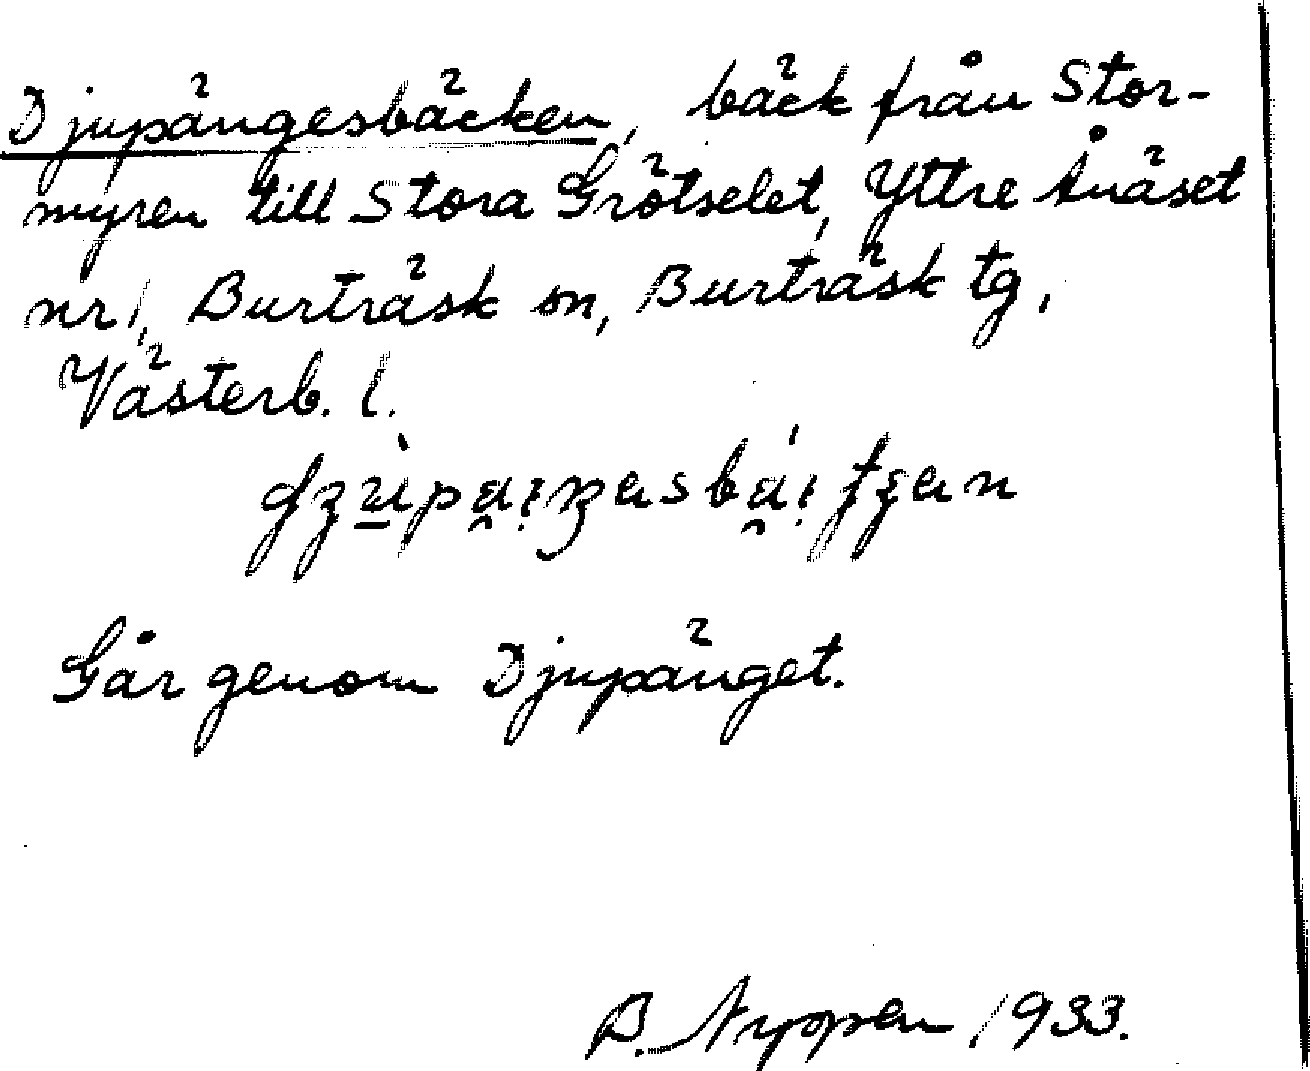 Djupängesbäcken, bäck från Stor-
myren till Stora Grötselet, Yttre Ånäset
nr 1, Burträsk sn, Burträsk tg,
Västerb. l.
Går genom Djupänget.
B. Nyppen 1933.